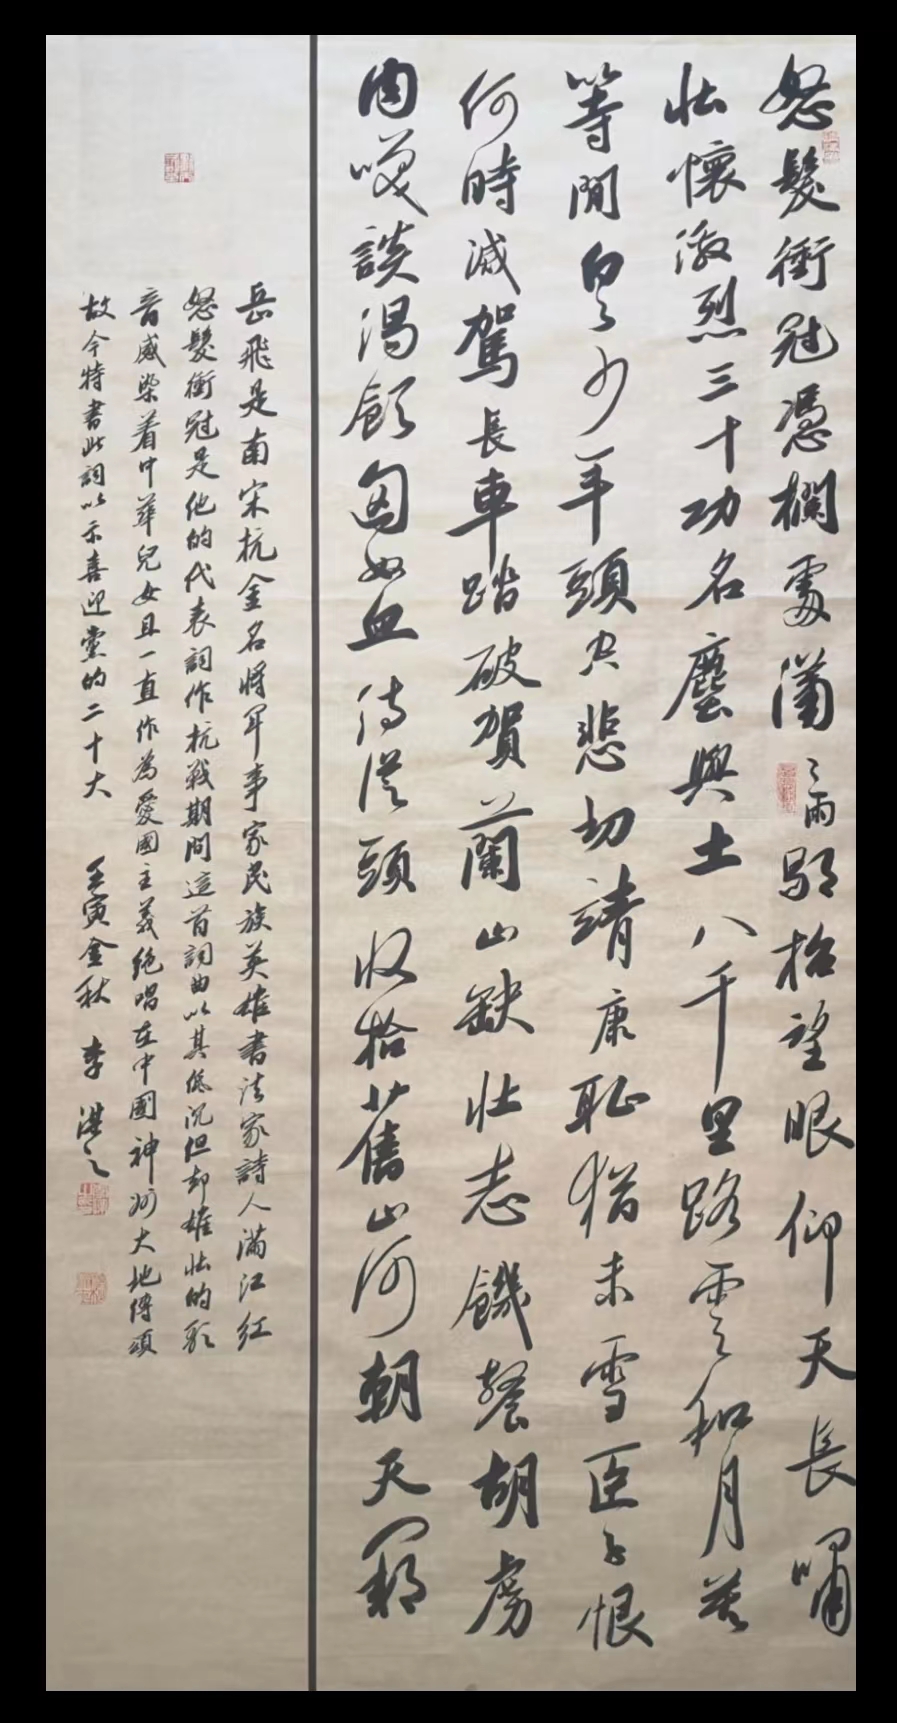 怒髮衝冠憑欄處瀟〻雨歇抬望眼仰天長嘯
壯懷激烈三十功名塵與土八千里路雲和月莫
等閒白了少年頭空悲切靖康恥猶未雪臣子恨
何時滅駕長車踏破賀蘭山缺壯志饑餐胡虜
肉笑談渴飲匈奴血待從頭收拾舊山河朝天闕
岳飛是南宋抗金名將軍事家民族英雄書法家詩人滿江紅
怒髮衝冠是他的代表詞作抗戰期間這首詞曲以其低沉但却雄壯的歌
音感染着中華兒女且一直作為愛國主義絕唱在中國神州大地傳頌
故今特書此詞以示喜迎黨的二十大 壬寅金秋 李洪之